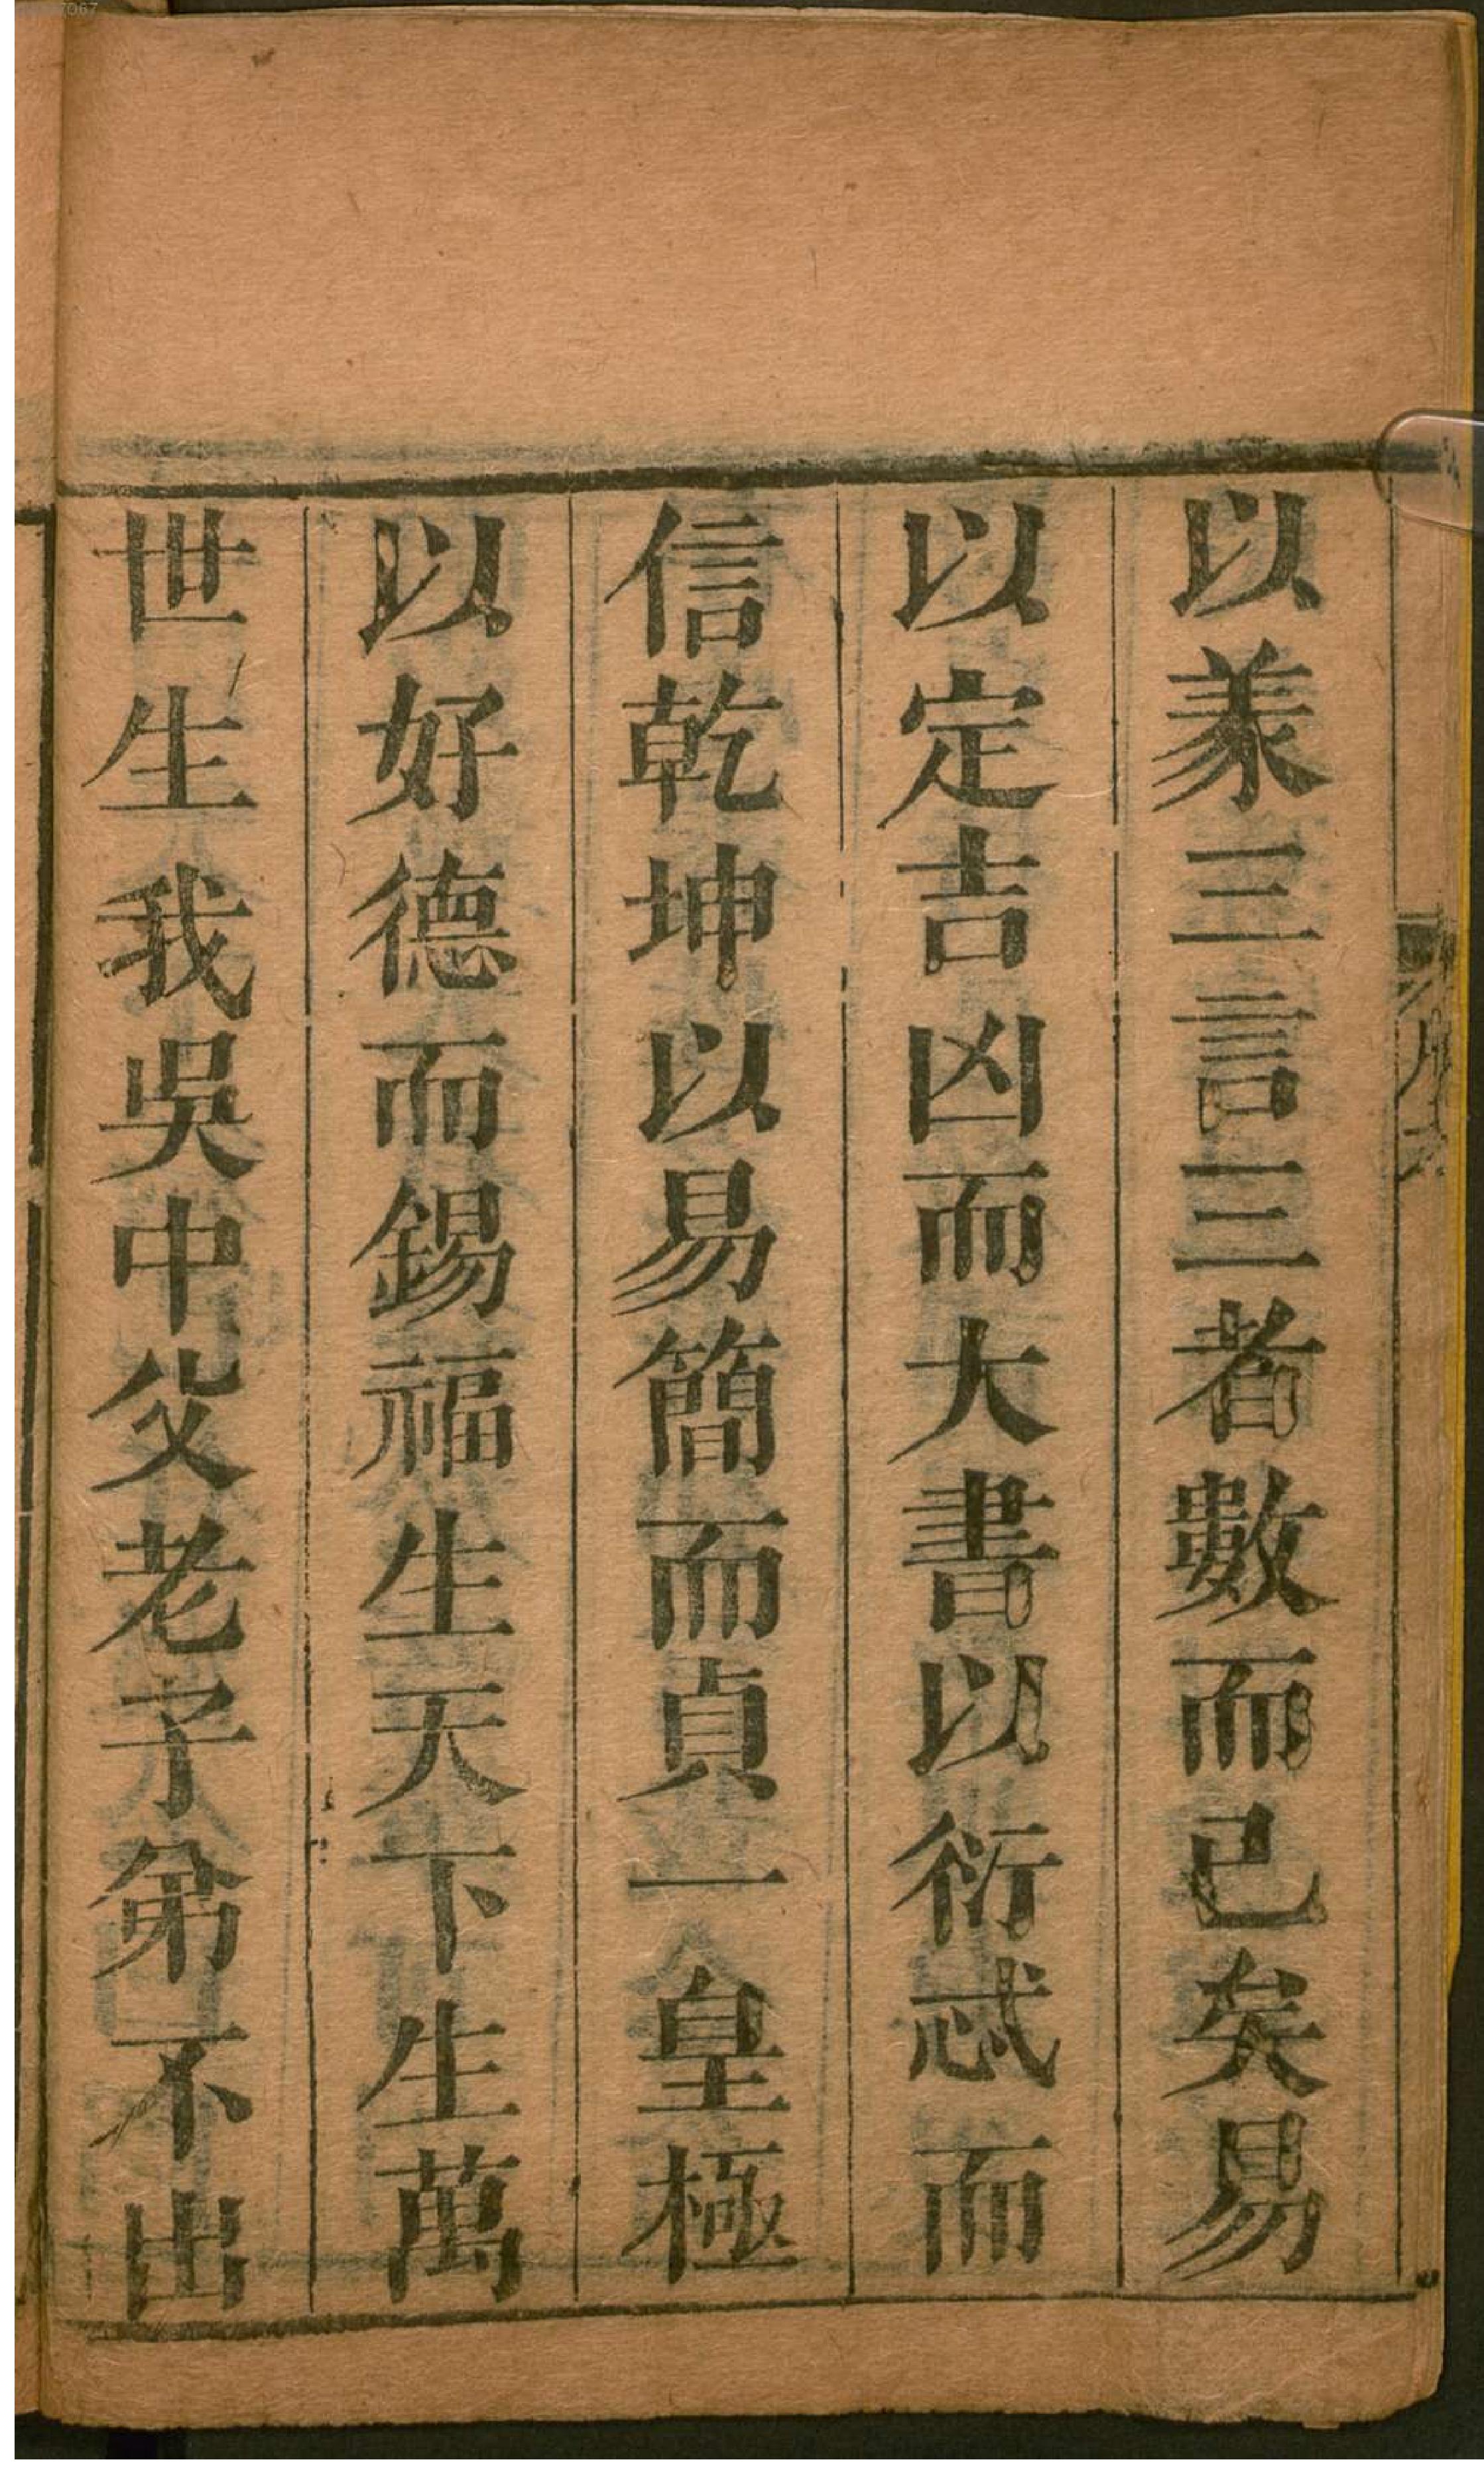 以象三言三者數而已矣易
以定吉凶而大書以衍忒而
信乾坤以易簡而貞一皇極
以好德而錫福生天下生萬
世生我吳中父老子弟不出